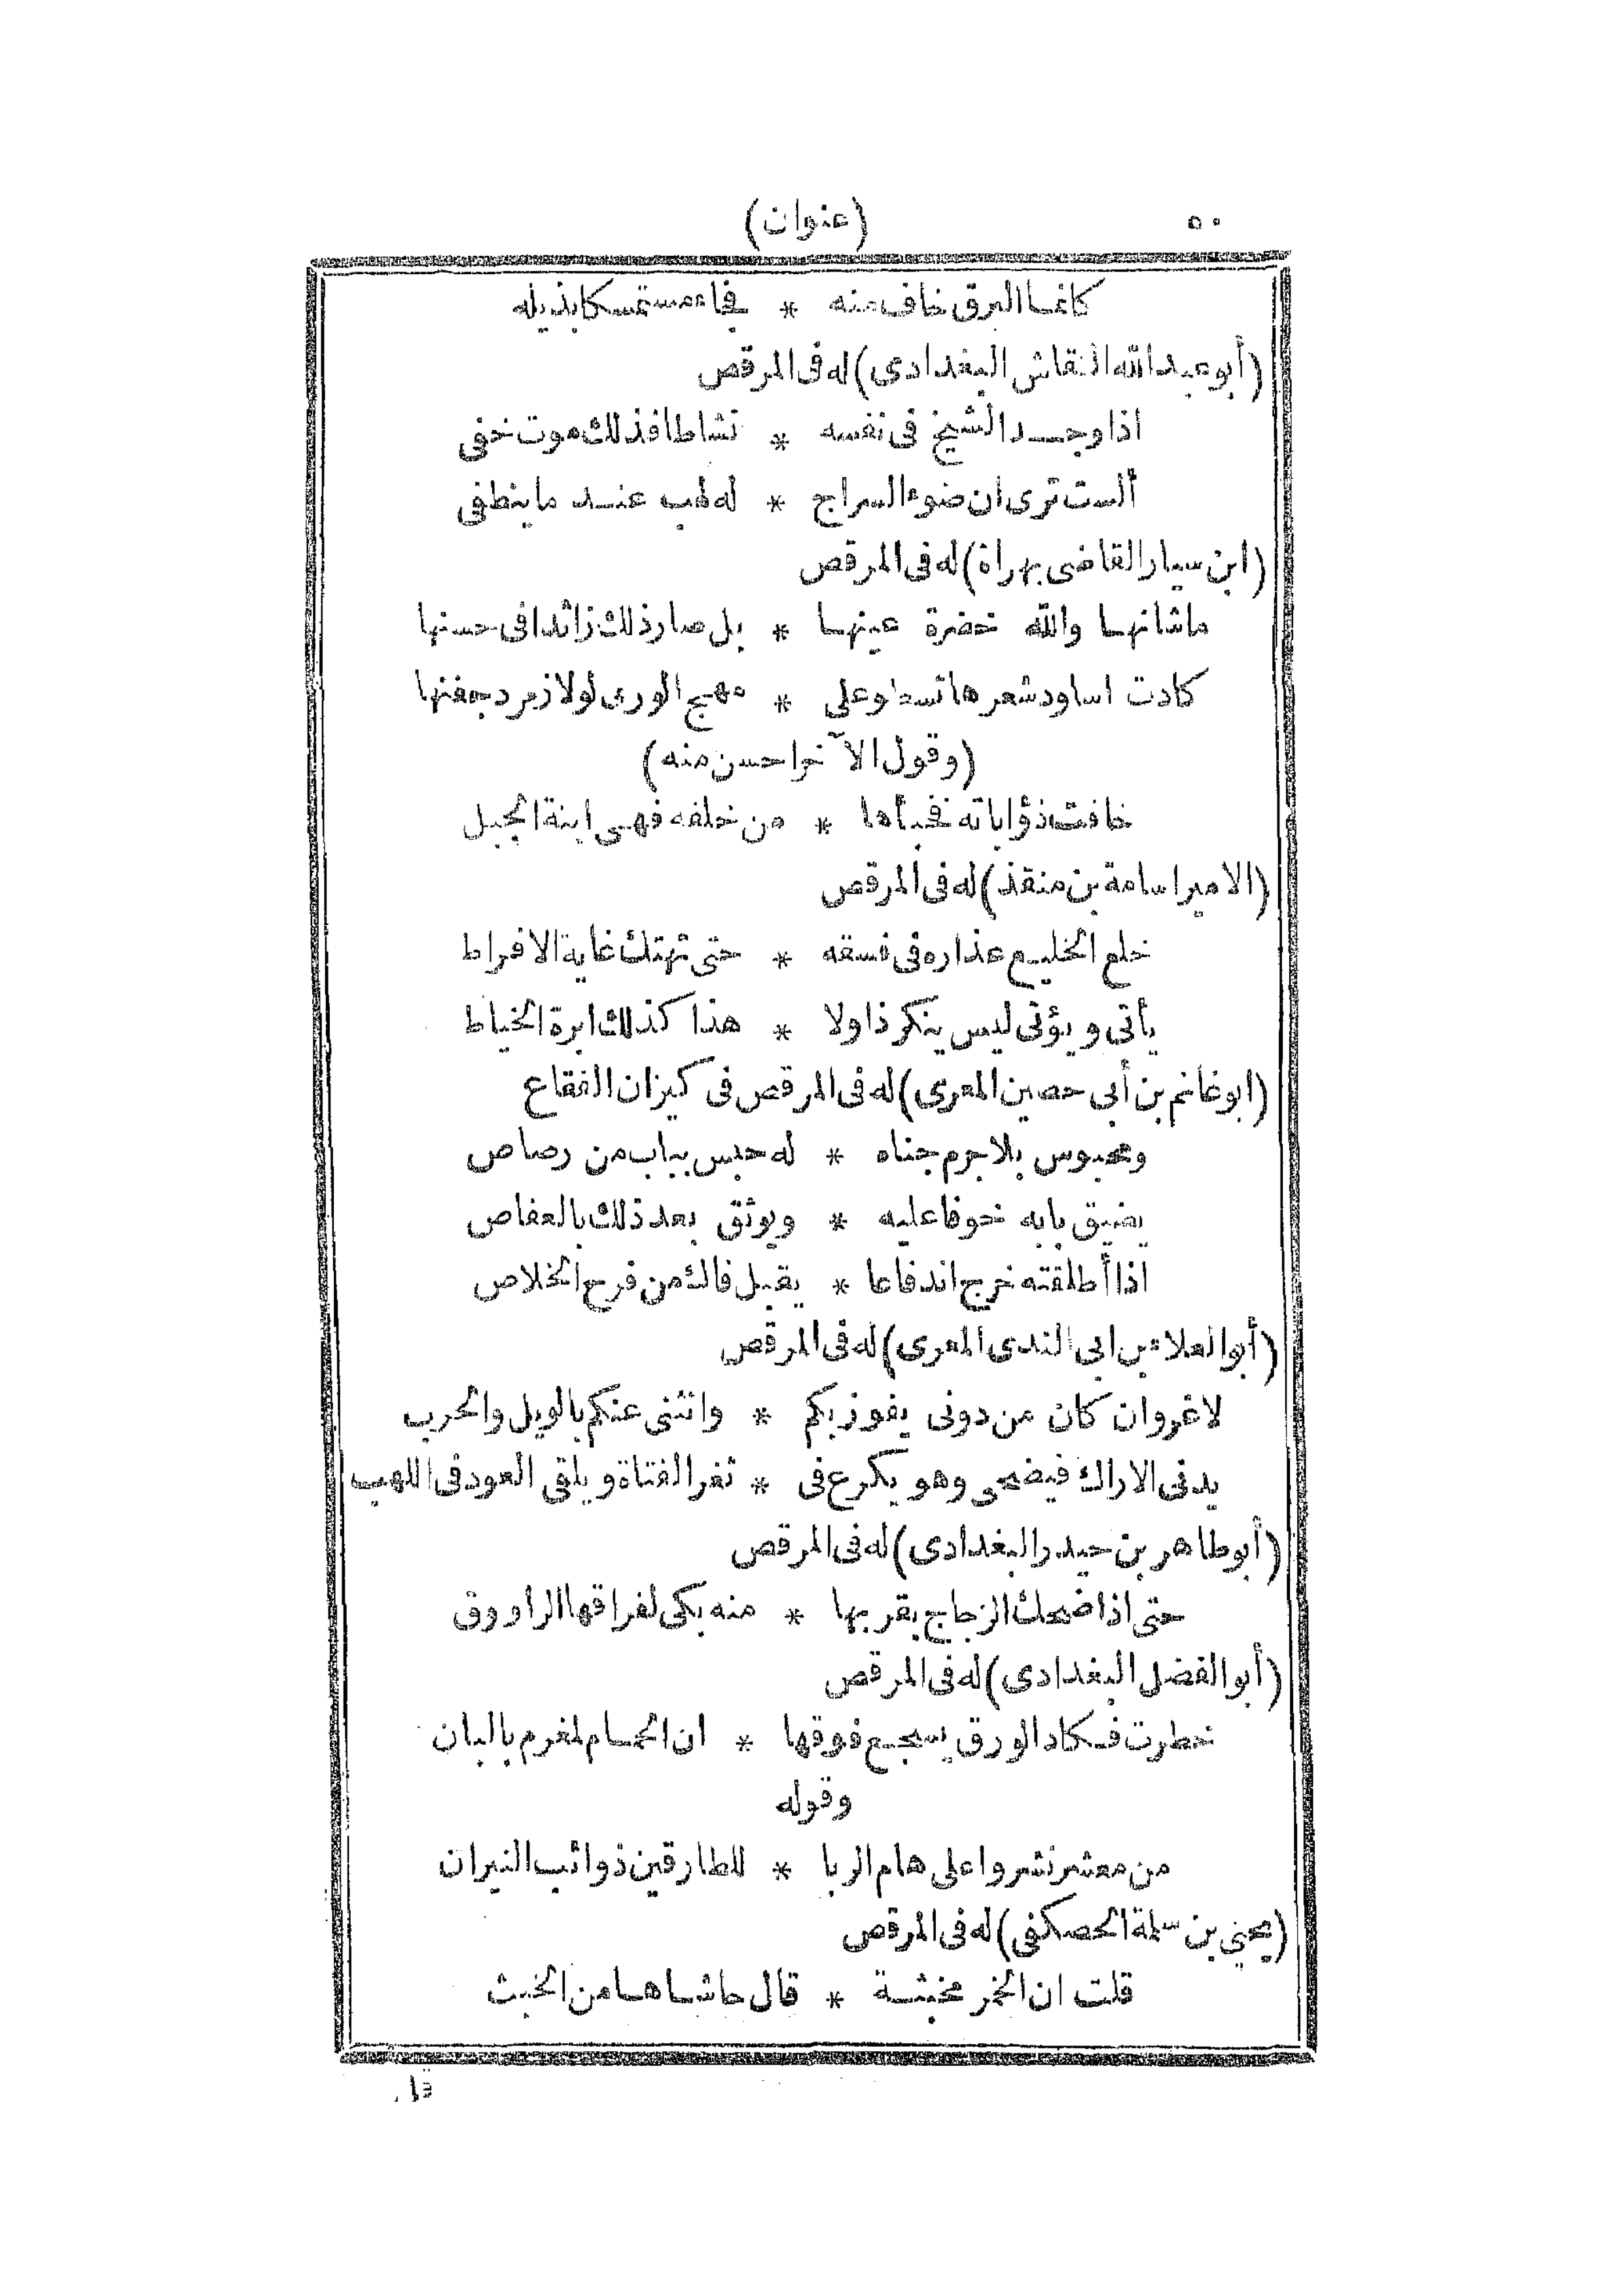 ٥٠ (عنوان)
كانما البرق خاف منه * فجاء مستمسكا بذيله
(أبو عبد الله النقاش البغدادى) له فى المرقص
اذا وجد الشيخ فى نفسه * نشاطا فذلك موت خفى
ألست ترى ان ضوء السراج * له لهب عند ما ينطفى
(ابن سيار القاضى بهراة) له فى المرقص
ما شانها والله خضرة عينها * بل صار ذلك زائدا فى حسنها
كادت اساود شعرها تسطو على * مهج الورى لولا زمرد جفنها
(وقول الآخر احسن منه)
خافت ذؤاباته فخبأها * من خلفه فهى ابنة الجبل
(الامير اسامة بن منقذ) له فى المرقص
خلع الخليع عذاره فى فسقه * حتى تهتك غاية الافراط
يأتى ويؤتى ليس ينكر ذا ولا * هذا كذلك ابرة الخياط
(ابو غانم بن أبى حصين المعرى) له فى المرقص فى كيزان الفقاع
ومحبوس بلا جرم جناه * له حبس بباب من رصاص
يضيق بابه خوفا عليه * ويوثق بعد ذلك بالعفاص
اذا أطلقته خرج اندفاعا * يقبل فاك من فرح الخلاص
(أبو العلاء بن ابى الندى المعرى) له فى المرقص
لا غروان كان من دونى يفوز بكم * وانثنى عنكم بالويل والحرب
يدنى الاراك فيضحى وهو يكرع فى * ثغر الفتاة ويلقى العود فى اللهب
(أبو طاهر بن حيدر البغدادى) له فى المرقص
حتى اذا ضحك الزجاج بقربها * منه بكى لفراقها الراووق
(أبو الفضل البغدادى) له فى المرقص
خطرت فكاد الورق يسجع فوقها * ان الحمام لمغرم بالبان
وقوله
من معشر نشروا على هام الربا * للطارقين ذوائب النيران
(يحيى بن سلمة الحصكفى) له فى المرقص
قلت ان الخمر مخبثة * قال حاشاها من الخبث